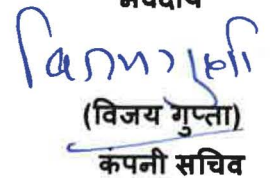 भवदीय
(विजय गुप्ता)
कंपनी सचिव